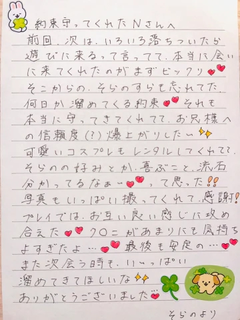 約束守ってくれたNさんへ
前回、次は、いろいろ落ちついたら
遊びに来るって言ってて、本当に会い
に来てくれたのがまずビックリ
そこからの、そらのすらも忘れてた、
何日か溜めてくる約束 それも
本当に守ってきてくれてて、お兄様へ
の信頼度(?)爆上がりしたー
可愛いコスプレもレンタルしてくれてて
そらのの好みとか、喜ぶこと、流石
分かってるなぁー って思った!!
写真もいっぱい撮ってくれて、感謝!
プレイでは、お互い良い感じに攻め
合えた クロニがあまりにも気持ち
よすぎたよ… 最後も安定の…
また次会う時も、いーっぱい
溜めてきてほしいな
ありがとうございました
そらのより